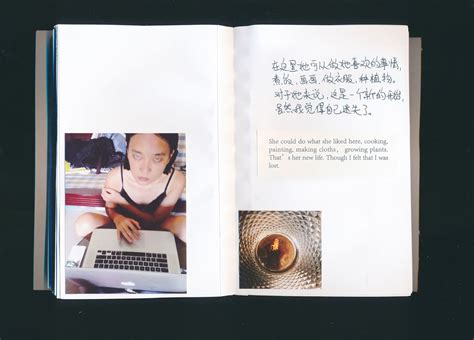 在这里她可以做她喜欢的事情,
煮饭、画画、做衣服、种植物。
对于她来说,这是一个新的开始,
虽然我觉得自己迷失了。
She could do what she liked here, cooking,
painting, making cloths, growing plants.
That's her new life. Though I felt that I was
lost.